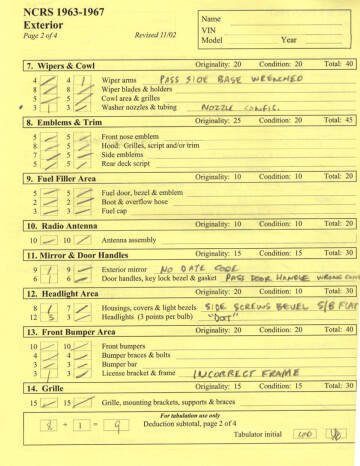 NCRS 1963-1967
Exterior
Page 2 of 4 Revised 11/02
Name
VIN
Model Year
7. Wipers & Cowl Originality: 20 Condition: 20 Total: 40
4 4 1 Wiper arms PASS SIDE BASE WRENCHED
8 8 Wiper blades & holders
5 5 Cowl area & grilles
3 1 3 Washer nozzles & tubing NOZZLE CONFIG.
8. Emblems & Trim Originality: 25 Condition: 20 Total: 45
5 5 Front nose emblem
8 5 Hood: Grilles, script and/or trim
7 5 Side emblems
5 5 Rear deck script
9. Fuel Filler Area Originality: 10 Condition: 10 Total: 20
5 5 Fuel door, bezel & emblem
2 2 Boot & overflow hose
3 3 Fuel cap
10. Radio Antenna Originality: 10 Condition: 10 Total: 20
10 10 Antenna assembly
11. Mirror & Door Handles Originality: 15 Condition: 15 Total: 30
9 1 9 Exterior mirror NO DATE CODE
6 1 6 Door handles, key lock bezel & gasket PASS DOOR HANDLE WRONG
12. Headlight Area Originality: 20 Condition: 10 Total: 30
8 1 7 Housings, covers & light bezels SIDE SCREWS BEVEL S/B FLAT
12 3 3 Headlights (3 points per bulb) "DOT"
13. Front Bumper Area Originality: 20 Condition: 20 Total: 40
10 10 Front bumpers
4 4 Bumper braces & bolts
3 3 Bumper bar
3 1 3 License bracket & frame INCORRECT FRAME
14. Grille Originality: 15 Condition: 15 Total: 30
15 15 Grille, mounting brackets, supports & braces
For tabulation use only
8 + 1 = 9 Deduction subtotal, page 2 of 4
Tabulator initial